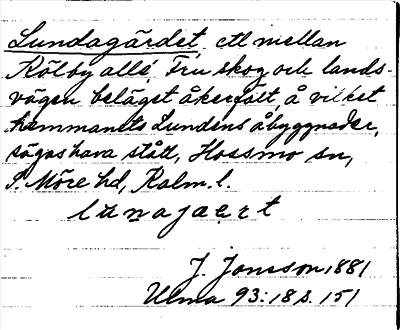 Lundagärdet, ett mellan
Kölby allé Fru skog och lands-
vägen beläget åkerfält, å vilket
hemmanets Lundens åbyggnader,
sägas hava stått, Hossmo sn,
S. Möre hd, Kalm. l.
J. Jonsson, 1881
Ulma 93:18 s. 151